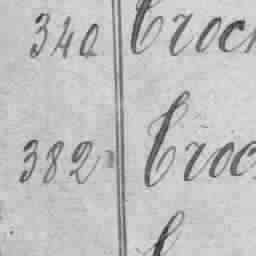 340 Croch
382 Croc